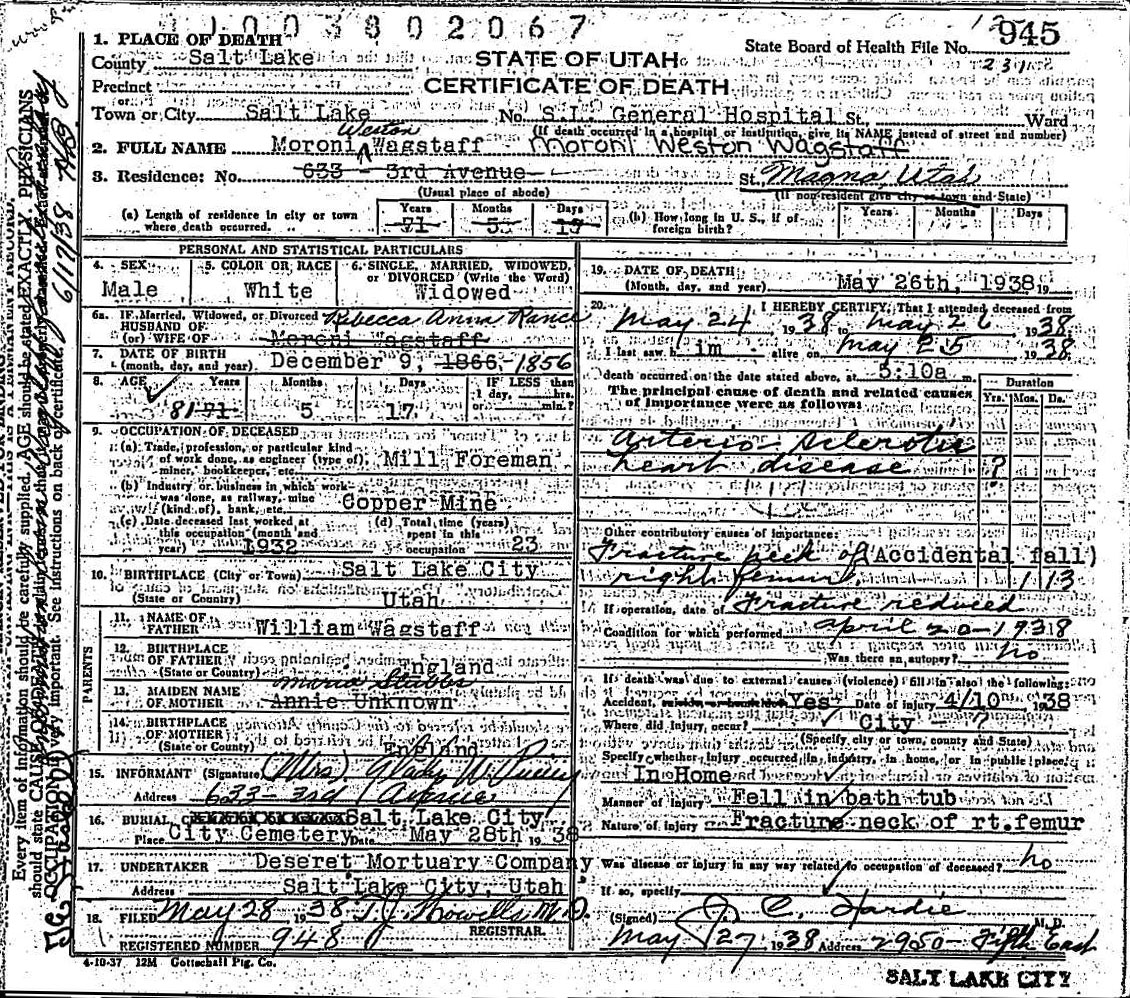 1003802067
1. PLACE OF DEATH
County Salt Lake
STATE OF UTAH
State Board of Health File No. 945
231
Precinct
CERTIFICATE OF DEATH
Town or City Salt Lake No. S.L. General Hospital St., Ward
(If death occurred in a hospital or institution, give its NAME instead of street and number)
Weston
2. FULL NAME Moroni Wagstaff - Moroni Weston Wagstaff
3. Residence: No. 633 - 3rd Avenue St. Magna, Utah
(Usual place of abode) (If non-resident give city or town and State)
(a) Length of residence in city or town where death occurred. Years 71 Months 5 Days 15
(b) How long in U. S., if of foreign birth? Years Months Days
PERSONAL AND STATISTICAL PARTICULARS
4. SEX Male
5. COLOR OR RACE White
6. SINGLE, MARRIED, WIDOWED, or DIVORCED (Write the Word) Widowed
6a. If Married, Widowed, or Divorced Rebecca Anna Rance
HUSBAND OF
(or) WIFE OF Moroni Wagstaff
7. DATE OF BIRTH
(month, day, and year) December 9, 1866, -1856
8. AGE Years 81 71 Months 5 Days 17 IF LESS than 1 day, hrs. or min.?
9. OCCUPATION OF DECEASED
(a) Trade, profession, or particular kind of work done, as engineer (type of), miner, bookkeeper, etc. Mill Foreman
(b) Industry or business in which work was done, as railway, mine (kind of), bank, etc. Copper Mine
(c) Date deceased last worked at this occupation (month and year) 1932
(d) Total time (years) spent in this occupation 23
10. BIRTHPLACE (City or Town) Salt Lake City
(State or Country) Utah
PARENTS
11. NAME OF FATHER William Wagstaff
12. BIRTHPLACE OF FATHER (State or Country) England
Maria Stubbs
13. MAIDEN NAME OF MOTHER Annie Unknown
14. BIRTHPLACE OF MOTHER (State or Country) England
15. INFORMANT (Signature) (Mrs)
Address 633 - 3rd Avenue
16. BURIAL, Salt Lake City
Place City Cemetery Date May 28th 1938
17. UNDERTAKER Deseret Mortuary Company
Address Salt Lake City, Utah
18. FILED May 28 1938 T.J. Howells M.D.
REGISTRAR.
REGISTERED NUMBER 948
4-10-37 12M Gottschall Ptg. Co.
19. DATE OF DEATH
(Month, day, and year) May 26th, 1938 19
20. I HEREBY CERTIFY, That I attended deceased from
May 24 1938 to May 26 1938
I last saw h im alive on May 25 1938
death occurred on the date stated above, at 5:10a m.
The principal cause of death and related causes of importance were as follows:
Duration
Yrs. Mos. Ds.
Arterio Sclerotic
heart disease ?
Other contributory causes of importance:
Fracture neck of (Accidental fall)
right femur. 1 13
If operation, date of Fracture reduced
Condition for which performed April 20-1938
Was there an autopsy? no
If death was due to external causes (violence) fill in also the following:
Accident, suicide, or homicide? Yes Date of injury 4/10 1938
Where did injury occur? City ?
(Specify city or town, county and State)
Specify whether injury occurred in industry, in home, or in public place.
In Home
Manner of injury Fell in bath tub
Nature of injury Fracture neck of rt. femur
Was disease or injury in any way related to occupation of deceased? no
If so, specify
(Signed) J. C. Hardie M. D.
May 27 1938 Address 2950 - Fifth East
SALT LAKE CITY
Every item of information should be carefully supplied. AGE should be stated EXACTLY. PHYSICIANS
should state CAUSE OF DEATH
OCCUPATION is very important. See instructions on back of certificate.
6/17/38